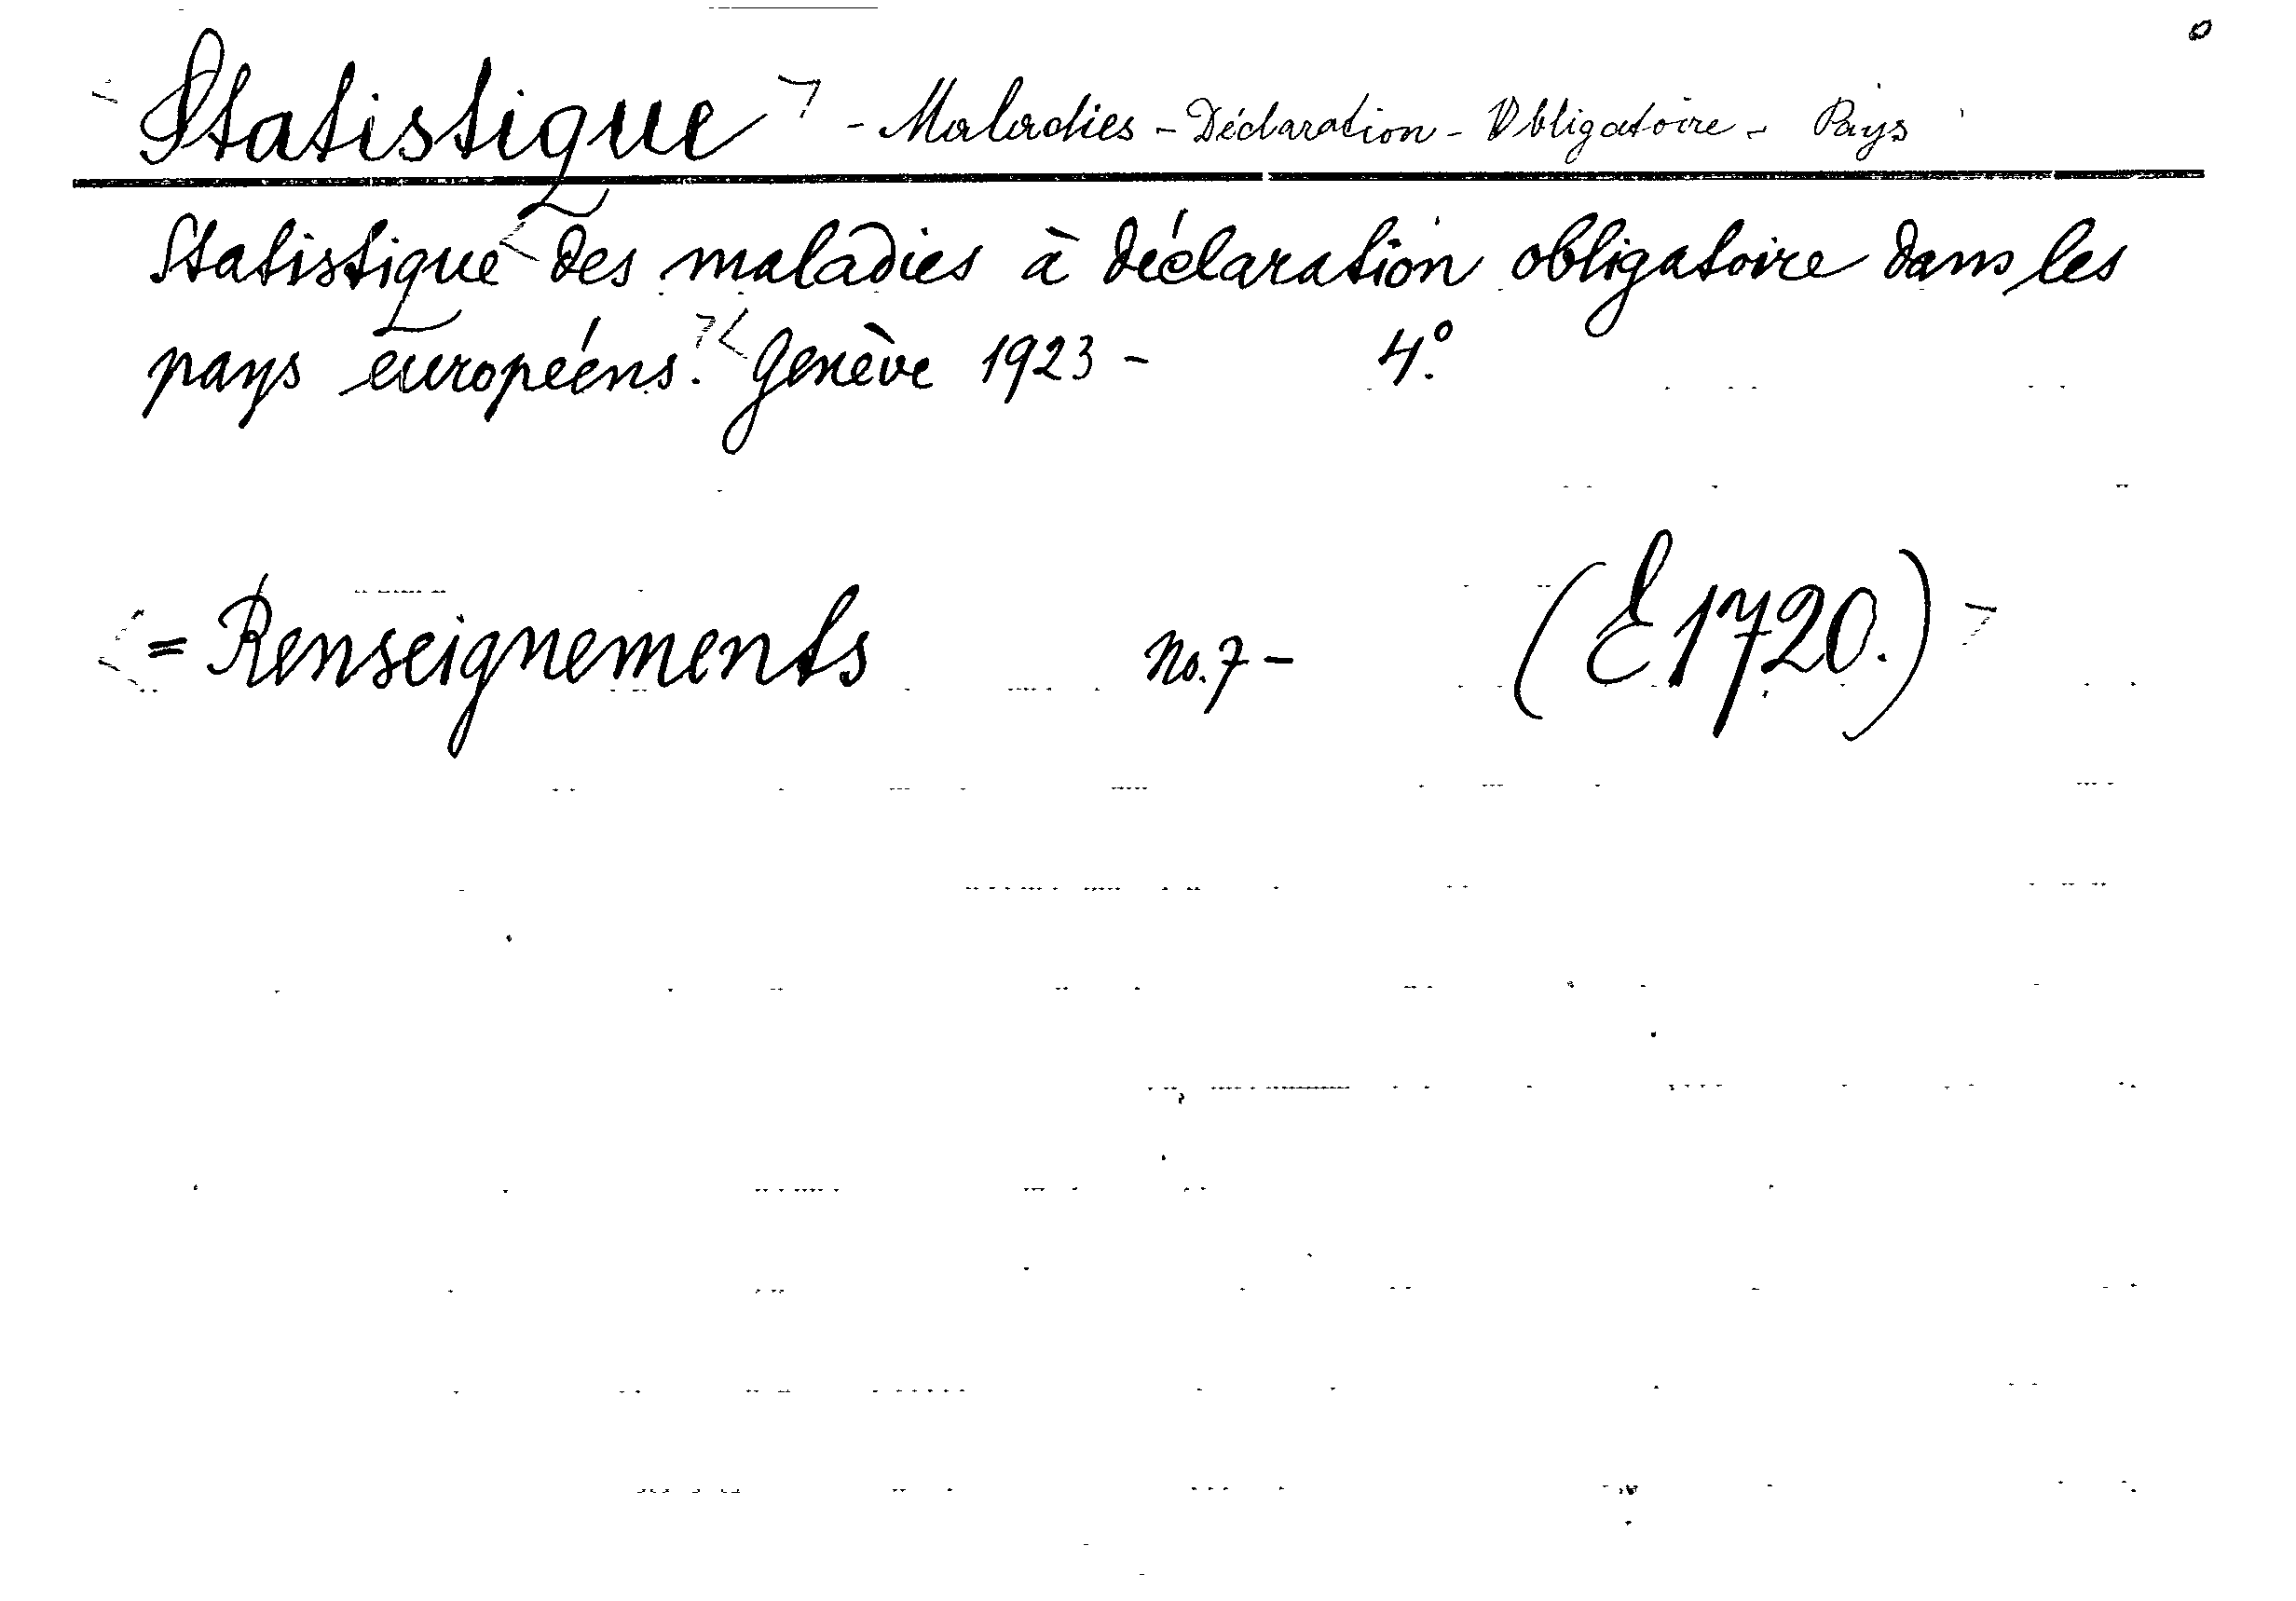 Statistique - Maladies - Déclaration - Obligatoire - Pays
Statistique des maladies à déclaration obligatoire dans les
pays européens. Genève 1923 - 4.º
= Renseignements No. 7 - (E 1720.)